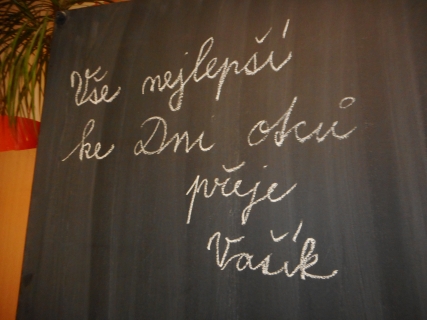 Vše nejlepší
ke Dni otců
přeje
Vašík